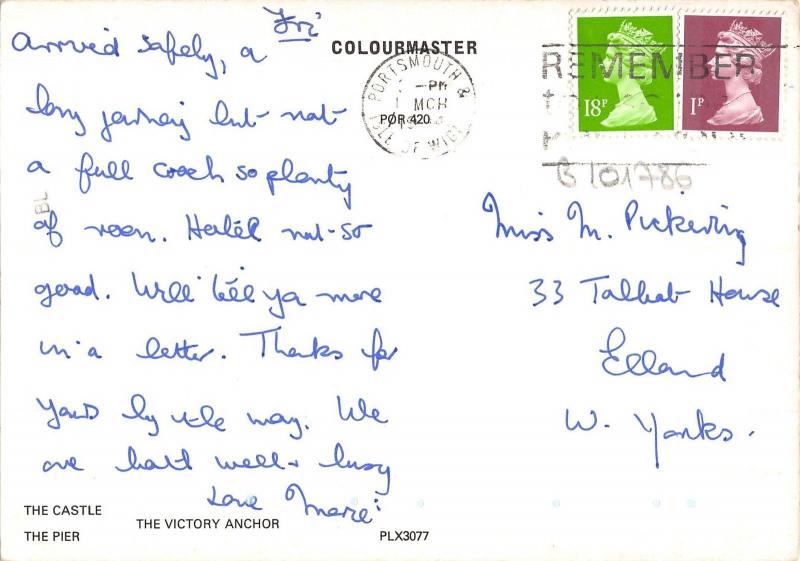 Fri
Arrived safely, a
long journey but not
a full coach so plenty
of room. Hotel not so
good. Will tell ya more
in a letter. Thanks for
yours by the way. We
are both well & busy
Love Marie
COLOURMASTER
PORTSMOUTH &
ISLE OF WIGHT
PM
MCH
19
POR 420
REMEMBER
18P
1P
B101786
Miss M. Pickering
33 Talbot House
Elland
W. Yorks.
BL
THE CASTLE
THE VICTORY ANCHOR
THE PIER
PLX3077